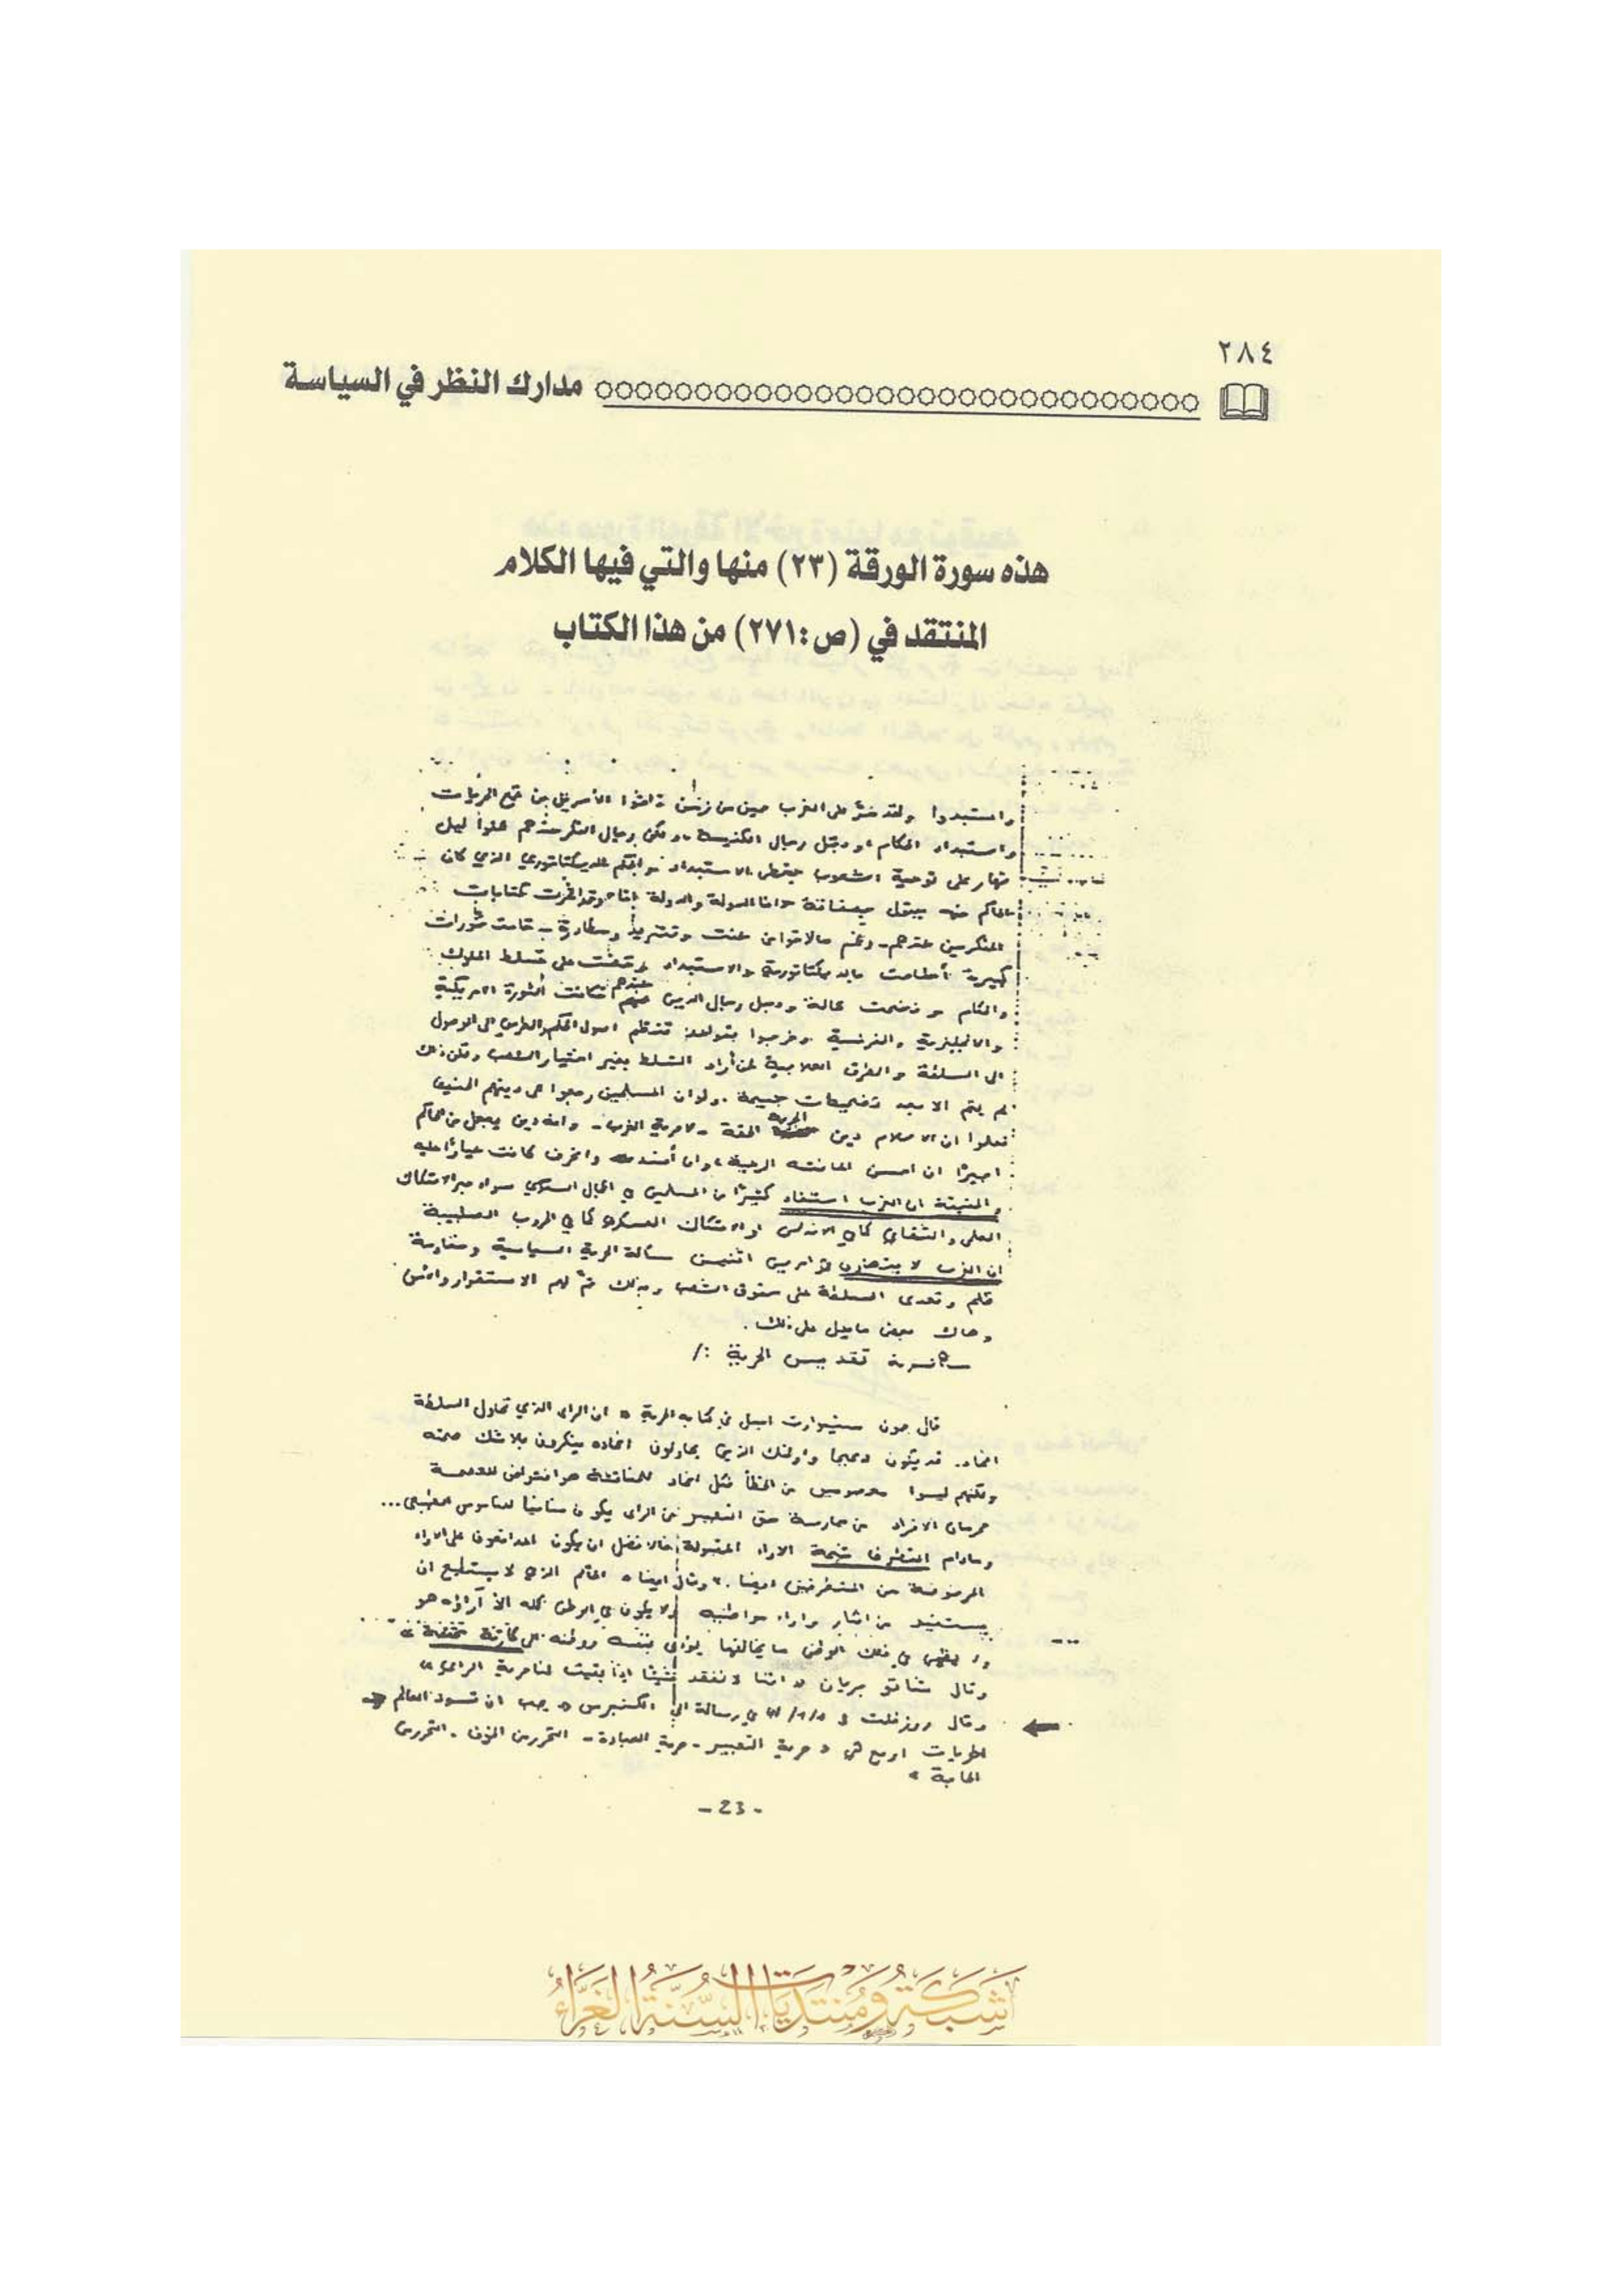 ٢٨٤
مدارك النظر في السياسة
هذه سورة الورقة (٢٣) منها والتي فيها الكلام
المنتقد في (ص:٢٧١) من هذا الكتاب
واستبدوا ولقد مر على الغرب حين من زمن ذاقوا الأمرين من قمع الحريات
واستبداد الحكام ودجل رجال الكنيسة ولكن رجال الفكر عندهم عملوا ليل
نهار على توعية الشعوب بخطر الاستبداد والحكم الديكتاتوري الذي كان
الحاكم فيه يقول أنا الدولة والدولة أنا وقد أثمرت كتابات
المفكرين عندهم - رغم ما لاقوا من عنت وتشريد ومطاردة - قامت ثورات
كبيرة أطاحت بالديكتاتورية والاستبداد وقضت على تسلط الملوك
والحكام و فضحت ودجل رجال الدين عندهم فكانت الثورة الامريكية
والانجليزية والفرنسية وخرجوا بقواعد تنظم اصول الحكم والطرق الى الوصول
الى السلطة والطرق لمن أراد التسلط بغير اختيار الشعب ولكن ذلك
لم يتم الا بعد تضحيات جسيمة . ولو ان المسلمين رجعوا الى دينهم الحنيف
لعلموا ان الاسلام دين الحرية الحقة - لا حرية الغرب - وانه دين يجعل من الحاكم
اجيرًا ان احسن اعانته الرعية وان أفسد وانحرف كانت عليه
والحقيقة ان الغرب استفاد كثيرًا من المسلمين في المجال السياسي سواء عبر الاحتكاك
العلمي والثقافي كما في الاندلس او الاحتكاك العسكري كما في الحروب الصليبية
ان الغرب لا يتنازلون في امرين اثنين مسألة الحرية السياسية ومقاومة
ظلم وتعدي السلطة على حقوق الشعب وبذلك تم لهم الاستقرار والامن
وهاك بعض ما يدل على ذلك .
تقديس الحرية :/
قال جون ستيوارت ميل في كتابه الحرية « ان الراى الذي تحاول السلطة
اخماده قد يكون صحيحا واولئك الذين يحاولون اخماده ينكرون بلا شك صحته
ولكنهم ليسوا معصومين من الخطأ فكل اخماد للمناقشة هو افتراض للعصمة
حرمان الافراد من ممارسة حق التعبير عن الراى يكون منافيا للناموس الطبيعي...
ومادام التطرف نتيجة الاراء المقبولة فالافضل ان يكون المدافعون على الاراء
المرفوضة من المتطرفين ايضا . » وقال ايضا « الحاكم الذي لا يستطيع ان
يستفيد من افكار واراء مواطنيه ولا يكون في الوطن كله الا آراؤه هو
ولا يظهر في ذلك الوطن ما يخالفها يؤدي بنفسه ووطنه الى كارثة محققة »
وقال شاتو بريان « اننا لا نفقد شيئا اذا بقيت لنا حرية الراى »
وقال روزفلت في رسالة الى الكنجرس « يجب ان تسود العالم
الحريات اربع هي « حرية التعبير - حرية العبادة - التحرر من الخوف - التحرر من
الحاجة »
- 23 -
شبكة ومنتديات السنة الغراء